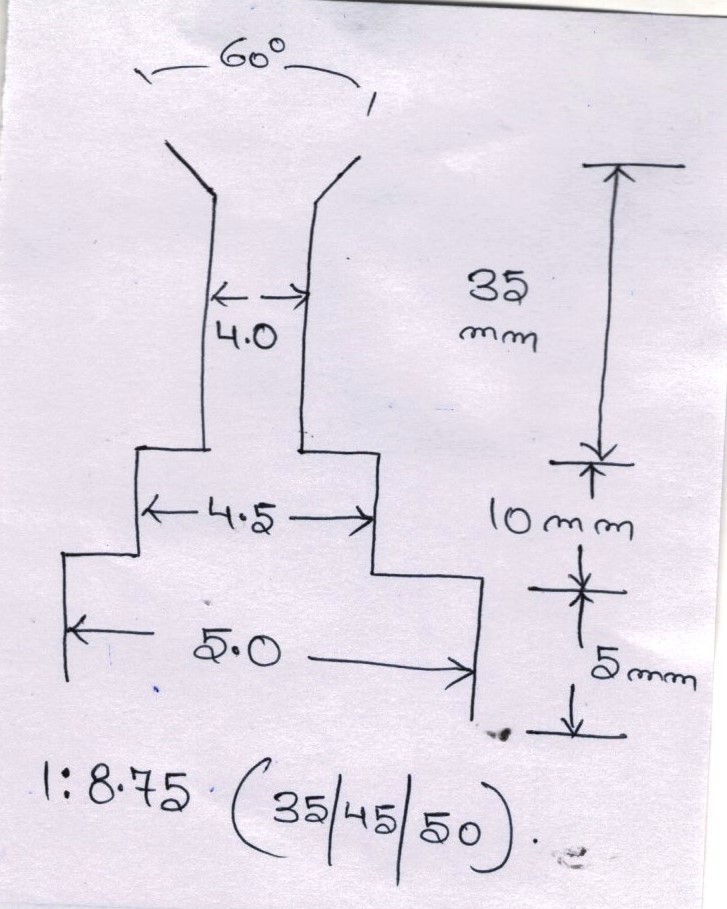 60°
35
mm
4.0
4.5
10 mm
5.0
5mm
1:8.75 (35/45/50).